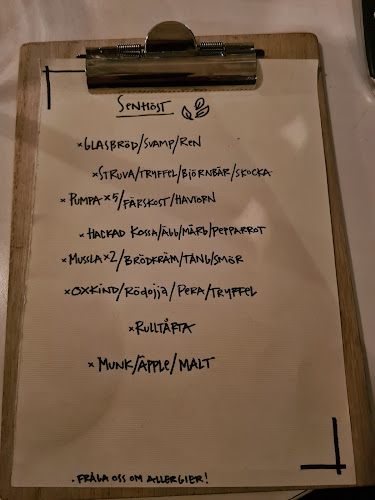 SENHÖST
× GLASBRÖD/SVAMP/REN
× STRUVA/TRYFFEL/BJÖRNBÄR/SKOCKA
× PUMPA × 5/FÄRSKOST/HAVTORN
× HACKAD KOSSA/ÄGG/MÄRG/PEPPARROT
× MUSSLA × 2/BRÖDKRÄM/TÅNG/SMÖR
× OXKIND/RÖDOJJA/PERA/TRYFFEL
× RULLTÅRTA
× MUNK/ÄPPLE/MALT
· FRÅGA OSS OM ALLERGIER!